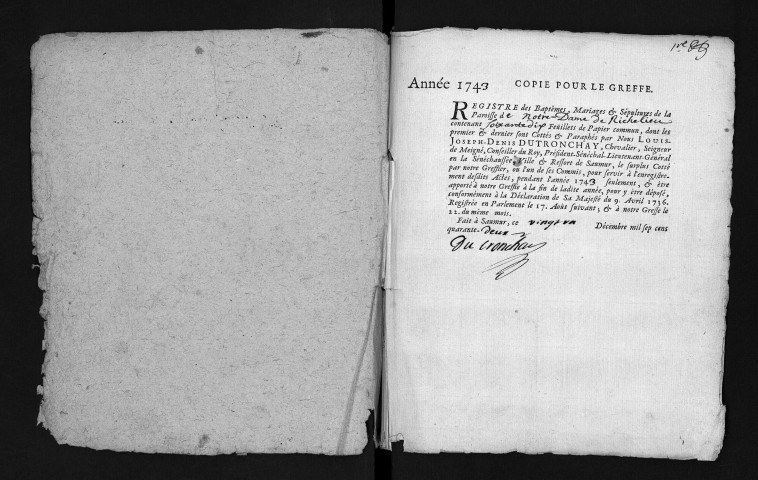 Année 1743 COPIE POUR LE GREFFE.
REGISTRE des Baptêmes, Mariages & Sépultures de la
Paroisse de Notre-Dame de Richelieu
contenant soixante dix Feuillets de Papier commun, dont les
premier & dernier sont Cottés & Paraphés par Nous LOUIS-
JOSEPH-DENIS DUTRONCHAY, Chevalier, Seigneur
de Meigné, Conseiller du Roy, Président-Sénéchal-Lieutenant-Général
en la Sénéchaussée, Ville & Ressort de Saumur, le surplus Cotté
par notre Greffier, ou l'un de ses Commis, pour servir à l'enregistre-
ment desdits Actes, pendant l'année 1743 seulement, & être
apporté à notre Greffe à la fin de ladite année, pour y être déposé,
conformément à la Déclaration de Sa Majesté du 9. Avril 1736.
Registrée en Parlement le 17. Août suivant; & à notre Greffe le
22. du même mois.
Fait à Saumur, ce vingt un Décembre mil sep cens
quarante-deux
Du tronchay